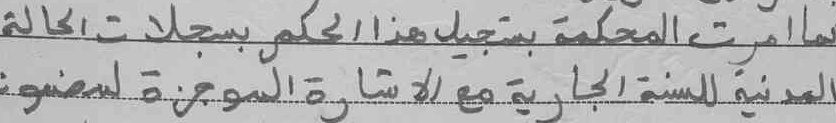 كما امرت المحكمة بتسجيل هذا الحكم بسجلات الحالة
المدنية للسنة الجارية مع الاشارة الموجزة لمضمون